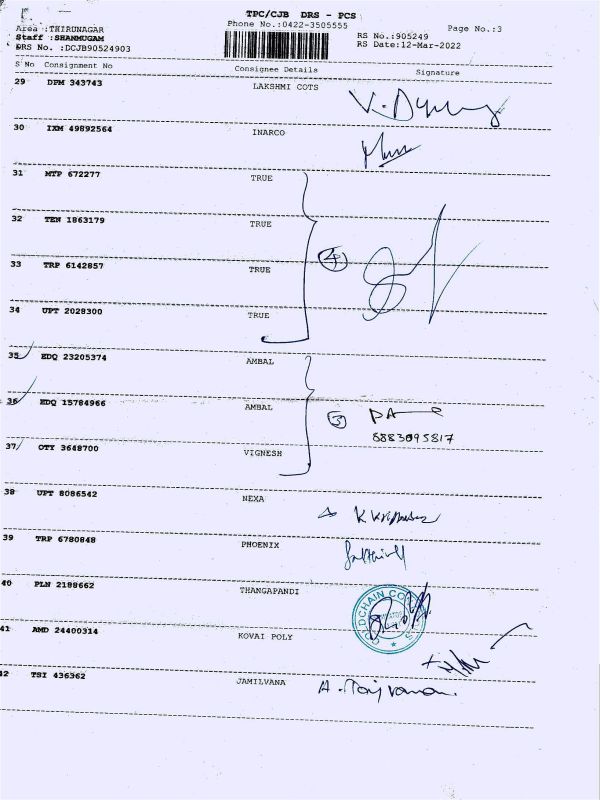 TPC/CJB DRS - PCS
Phone No.:0422-3505555
Page No.:3
Area :THIRUNAGAR
Staff :SHANMUGAM
DRS No. :DCJB90524903
RS No.:905249
RS Date:12-Mar-2022
S No Consignment No Consignee Details Signature
29 DPM 343743 LAKSHMI COTS
30 IXM 49892564 INARCO
31 MTP 672277 TRUE
32 TEN 1863179 TRUE
4
33 TRP 6142857 TRUE
34 UPT 2028300 TRUE
35 EDQ 23205374 AMBAL
36 EDQ 15784966 AMBAL
3
8883095817
37 OTY 3648700 VIGNESH
38 UPT 8086542 NEXA
39 TRP 6780848 PHOENIX
40 PLN 2188662 THANGAPANDI
41 AMD 24400314 KOVAI POLY
42 TSI 436362 JAMILVANA